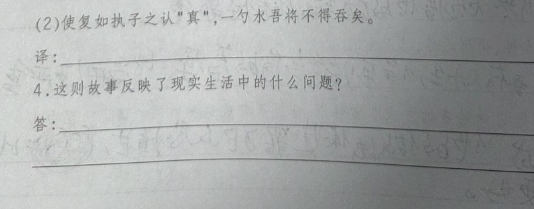 (2)使复如执子之认"真",一勺水吾将不得吞矣。
译:
4.这则故事反映了现实生活中的什么问题?
答: